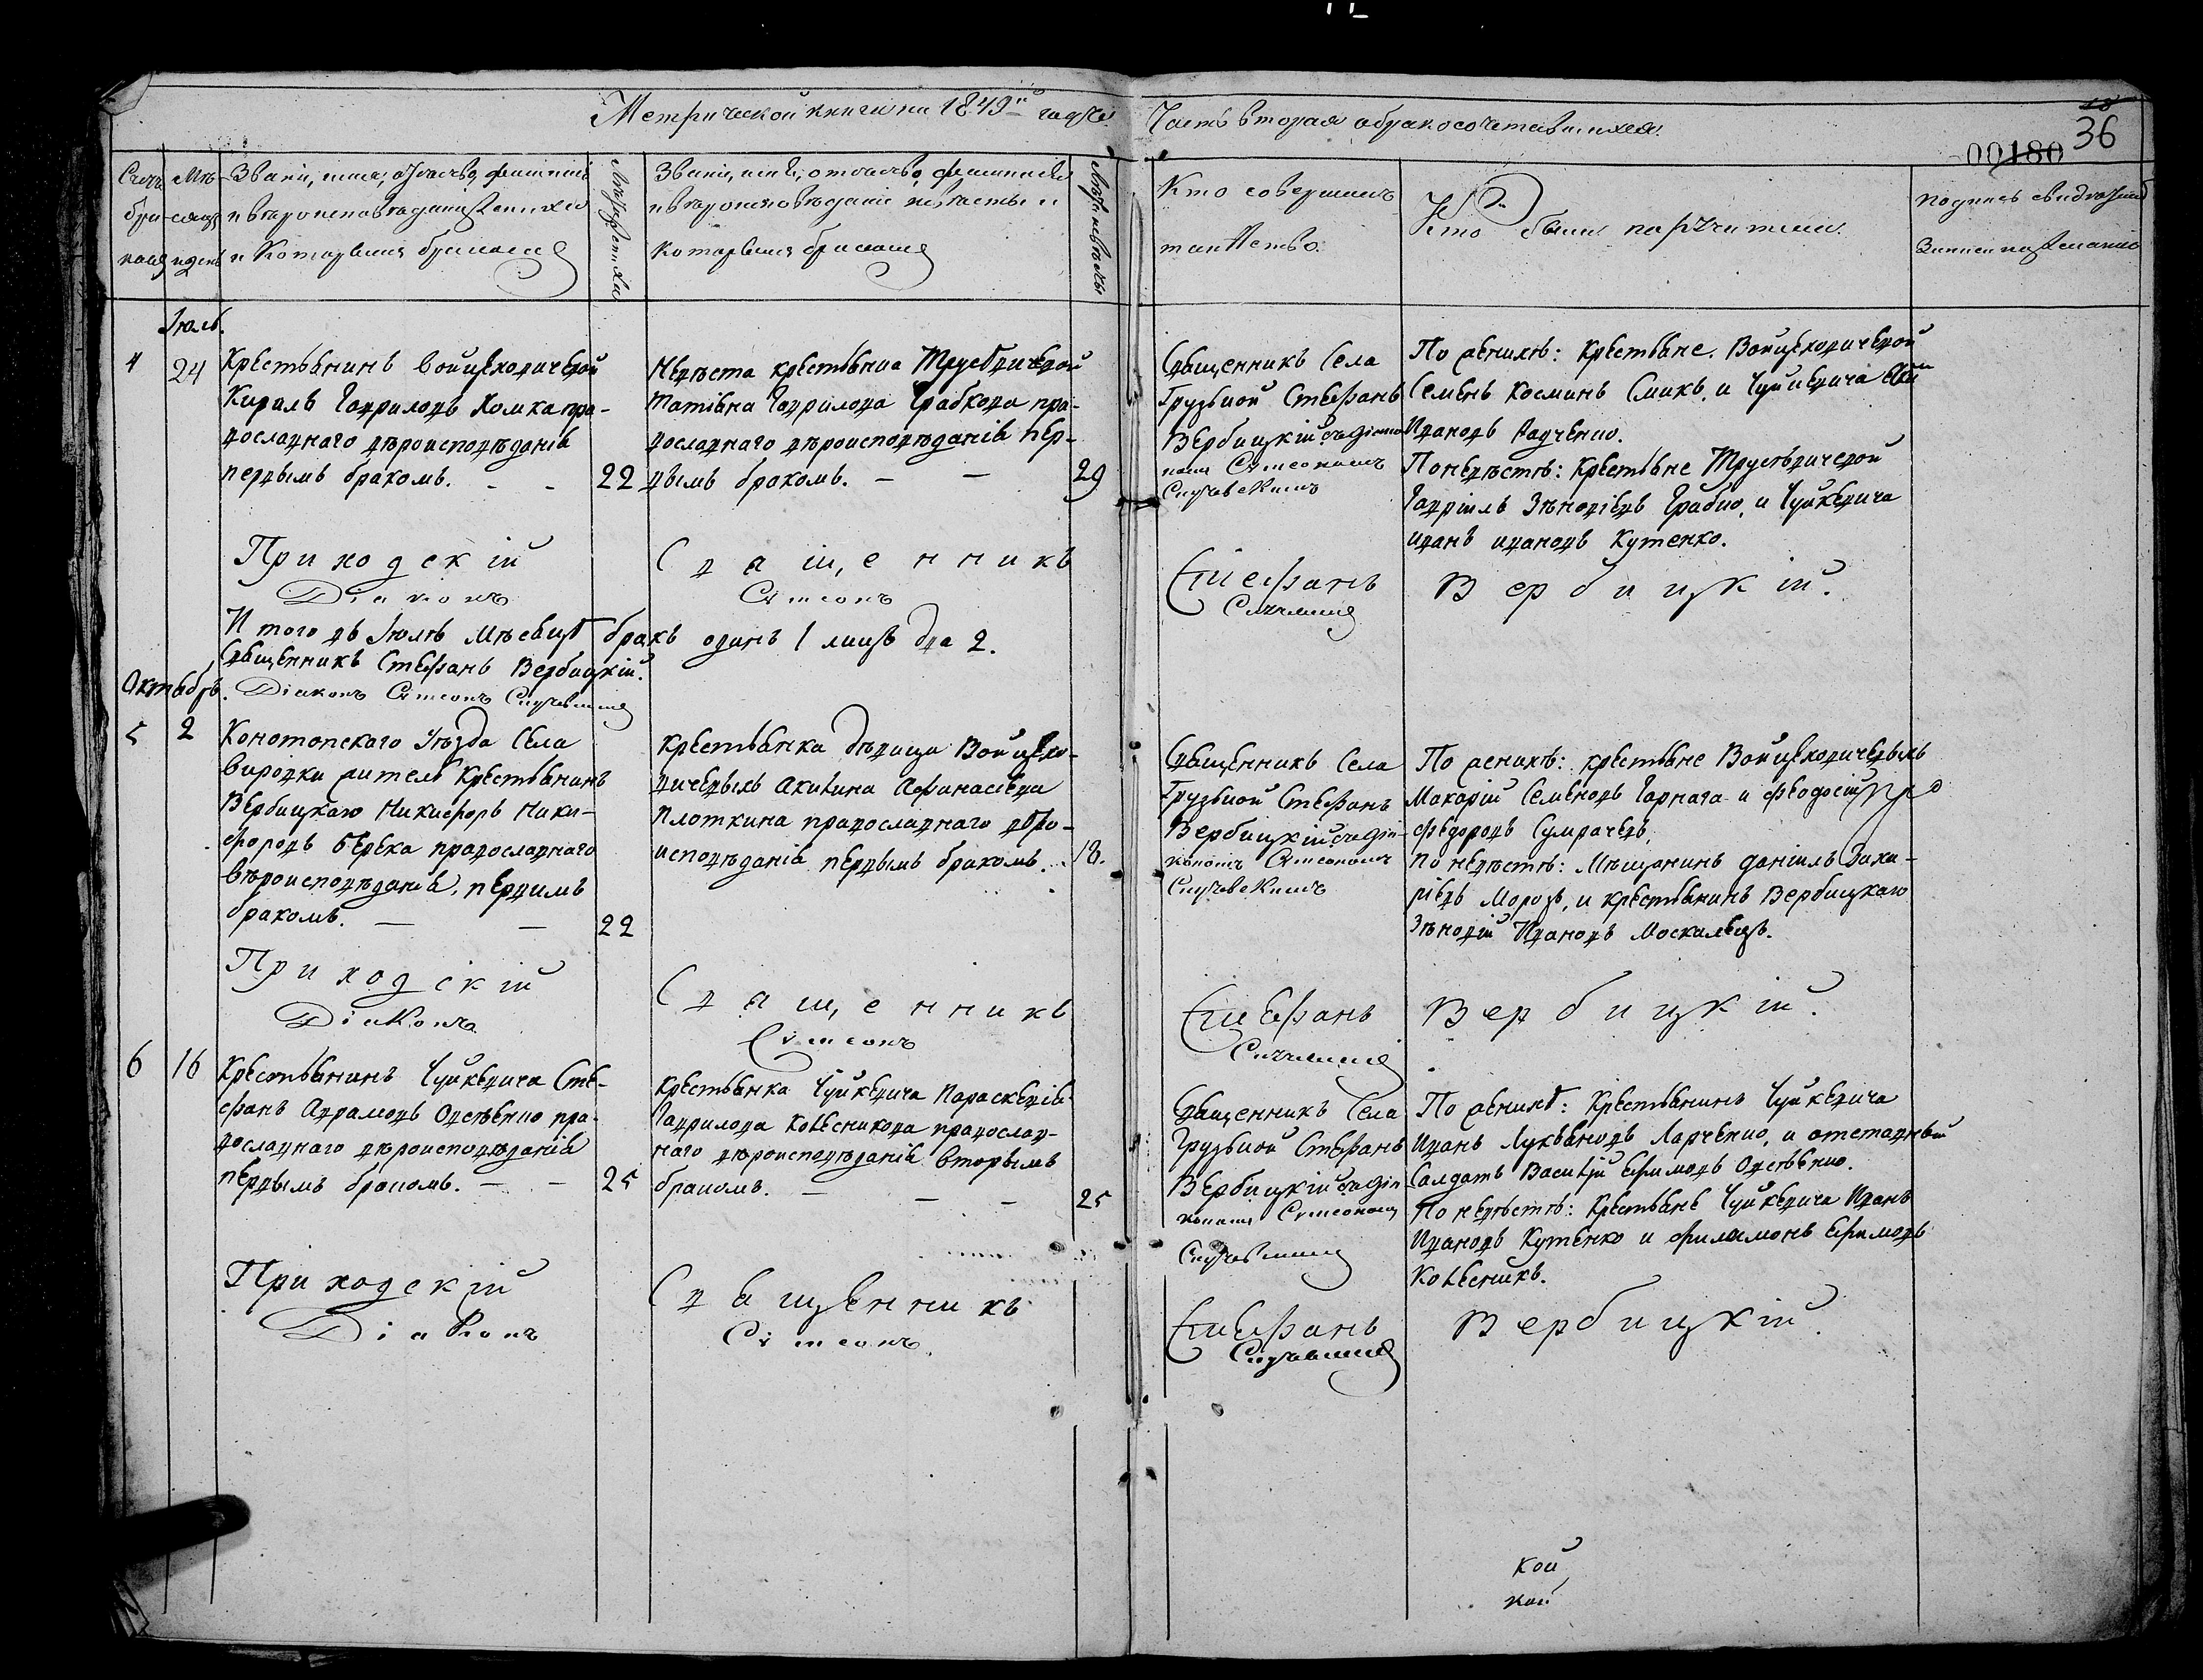 Метрической книги на 1849й годъ Часть вторая о бракосочетавшихся.
18
36
00180
Счетъ бра-ковъ
Мѣ-сяцъ и день
Званіе, имя, отчество, фамилія
и вѣроисповѣданіе жениха
и которымъ бракомъ
Лѣта жениха
Званіе, имя, отчество, фамилія
и вѣроисповѣданіе невѣсты и
которымъ бракомъ
Лѣта невѣсты
Кто совершалъ
таинство.
Кто были поручители.
подпись свидѣтелей
записи по желанію
Іюль.
4
24
Крестьянинъ Войцеховичевой
Кирилъ Гавриловъ Хомка пра-
вославнаго вѣроисповѣданія
первымъ бракомъ. - -
22
Невѣста крестьянка Трусевичевой
Татіана Гаврилова Грабкова пра-
вославнаго вѣроисповѣданія пер-
вымъ бракомъ. - -
29
Священникъ Села
Грузкой Стефанъ
Вербицкій съ діако-
номъ Симеономъ
По женихѣ: Крестьяне. Войцеховичевой
Семенъ Косминъ Смикъ, и Чуйкевича
Ивановъ Радченко.
По невѣстѣ: Крестьяне Трусевичевой
Гавріилъ Зѣновіевъ Грабко, и Чуйкевича
Иванъ Ивановъ Кутенко.
Приходскій Священникъ Стефанъ Вербицкій.
Діаконъ Симеонъ
Итого въ Іюлѣ Мѣсяцѣ бракъ одинъ 1 лицъ два 2.
Священникъ Стефанъ Вербицкій.
Діаконъ Симеонъ
Октябрь.
5
2
Конотопскаго Уѣзда Села
Вировки житель Крестьянинъ
Вербицкаго Никифоръ Ники-
форовъ Берека православнаго
вѣроисповѣданія, первимъ
бракомъ. - -
22
Крестьянка дѣвица Войцехо-
вичевыхъ Акилина Афанасіева
Плоткина православнаго вѣро-
исповѣданія первымъ бракомъ.
18.
Священникъ Села
Грузкой Стефанъ
Вербицкій съ діа-
кономъ Симеономъ
По женихѣ: крестьяне Войцеховичевыхъ
Макарій Семеновъ Гарнага и Феодосій
Федоровъ Сумрачевъ,
по невѣстѣ: Мѣщанинъ Даніилъ Заха-
ріевъ Морозъ, и крестьянинъ Вербицкаго
Зѣновій Ивановъ Москалецъ.
Приходскій Священникъ Стефанъ Вербицкій.
Діаконъ Симеонъ
6
16
Крестьянинъ Чуйкевича Сте-
фанъ Аврамовъ Овсѣенко пра-
вославнаго вѣроисповѣданія
первымъ бракомъ. - -
25
Крестьянка Чуйкевича Параскевія
Гаврилова Колесникова православ-
наго вѣроисповѣданія вторымъ
бракомъ. - - -
25
Священникъ Села
Грузкой Стефанъ
Вербицкій съ діа-
кономъ Симеономъ
По женихѣ: Крестьянинъ Чуйкевича
Иванъ Лукьяновъ Ларченко, и отставный
Солдатъ Василій Ефимовъ Овсѣенко.
По невѣстѣ: Крестьяне Чуйкевича Иванъ
Ивановъ Кутенко и Филимонъ Ефимовъ
Колесникъ.
Приходскій Священникъ Стефанъ Вербицкій.
Діаконъ Симеонъ
кой
кой